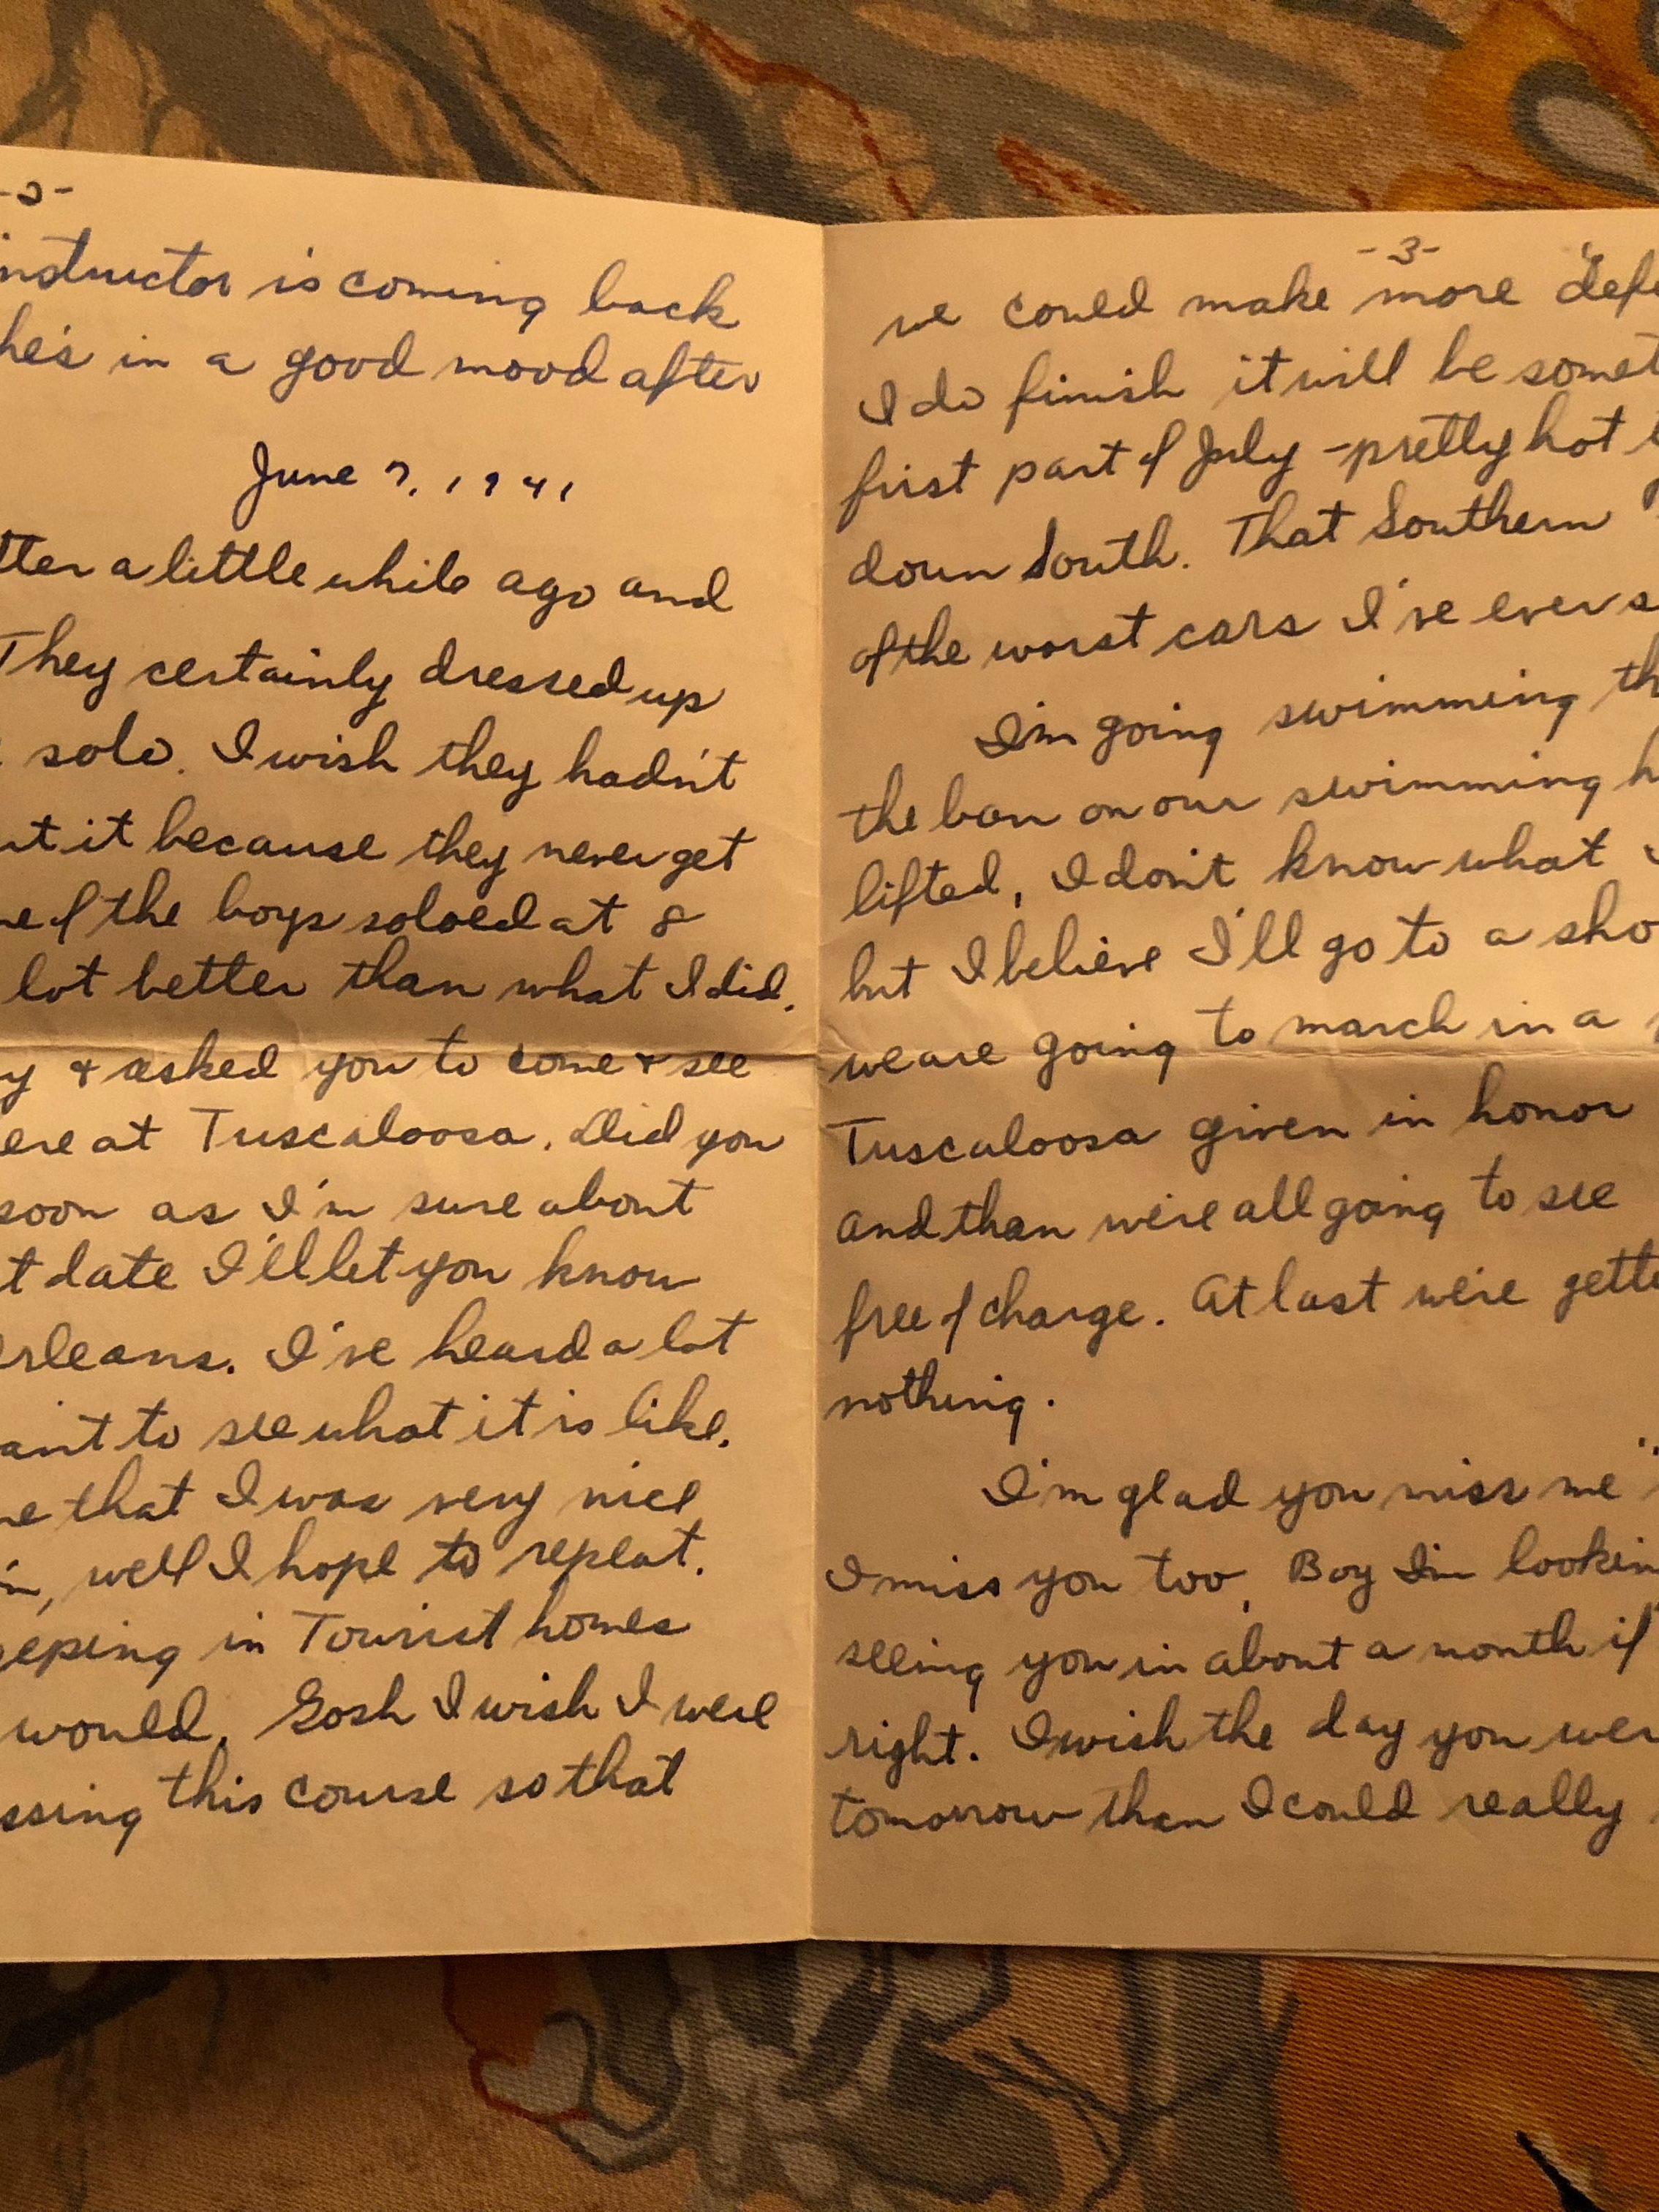 -2-
instructor is coming back
he's in a good mood after
June 7, 1941
tter a little while ago and
They certainly dressed up
solo. I wish they hadn't
ut it because they never get
ne of the boys soloed at 8
lot better than what I did.
y & asked you to come & see
ere at Tuscaloosa. Did you
soon as I'm sure about
t date I'll let you know
rleans. I've heard a lot
ant to see what it is like.
me that I was very nice
in, well I hope to repeat.
eeping in Tourist homes
would. Gosh I wish I were
ssing this course so that
-3-
we could make more "defi
I do finish it will be somet
first part of July - pretty hot
down South. That Southern
of the worst cars I've ever s
I'm going swimming th
the ban on our swimming h
lifted, I don't know what
but I believe I'll go to a sho
we are going to march in a
Tuscaloosa given in honor
and than we're all going to see
free of charge. At last we're gett
nothing.
I'm glad you miss me "
I miss you too. Boy I'm lookin
seeing you in about a month if
right. I wish the day you wer
tomorrow than I could really